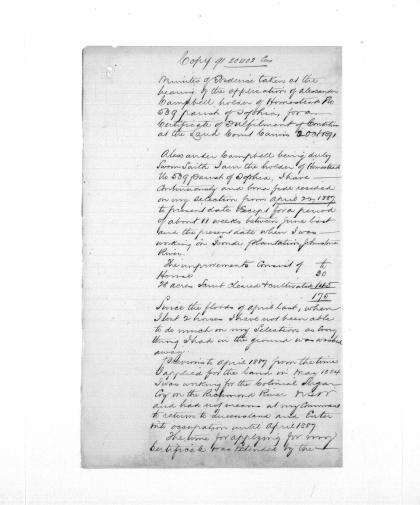 Copy 91 20402 Les
Minutes of Evidence taken at the
hearing of the application of Alexander
Campbell holder of Homestead No
539 parish of Sophia, for a
Certificate of Fulfilment of Conditions
at the Land Court Cairns 20 Oct 1891
Alexander Campbell being duly
Sworn Saith I am the holder of Homestead
No 539 Parish of Sophia, I have
Continuously and bona fide resided
on my Selection from april 22, 1887
to present date Except for a period
of about 11 weeks between June last
and the present date when I was
working on Plantation Johnstone
River.
The improvements Consist of £
House 30
20 acres Scrub Cleared & cultivated 145
175
Since the floods of april last, when
I lost 2 horses I have not been able
to do much on my Selection as Every
thing I had in the ground was washed
away.
Previous to april 1887 from the time
I applied for the land in May 1884
I was working for the Colonial Sugar
Coy on the Richmond River NSW
and had not means at my Command
to return to Queensland and Enter
into occupation until April 1887.
The time for applying for my
Certificate was Extended by the